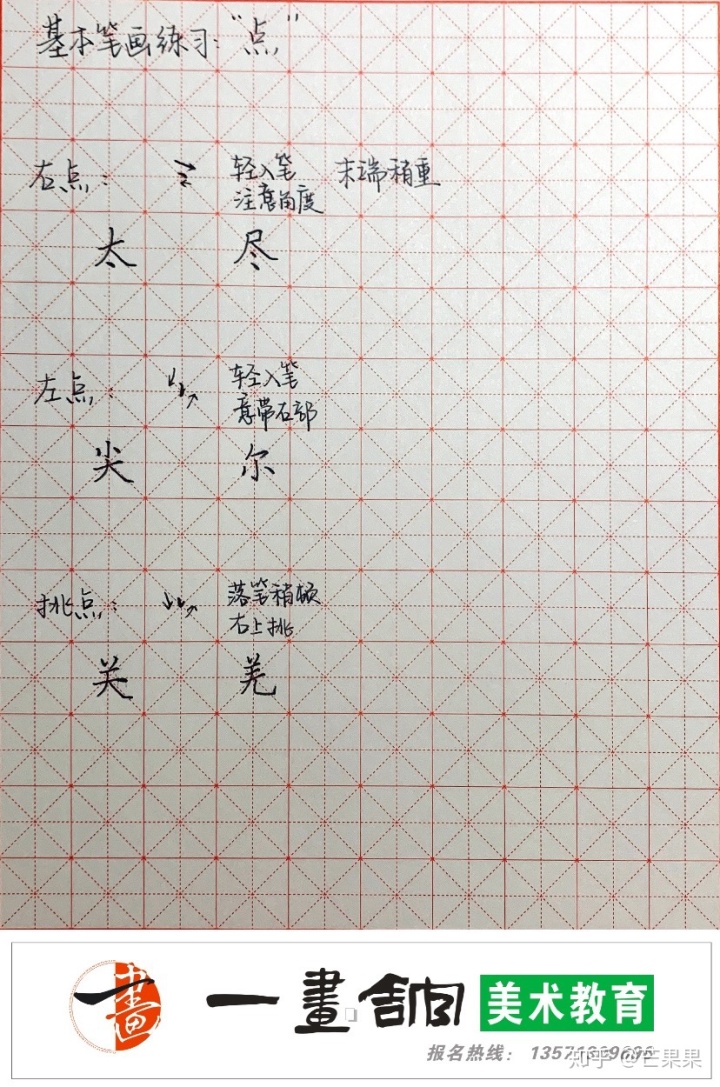 基本笔画练习："点"
右点： 轻入笔 末端稍重
注意角度
太 尽
左点： 轻入笔
意带右部
尖 尔
挑点： 落笔稍顿
右上挑
关 羌
画
一畫舍 美术教育
报名热线：
知乎 @芒果果